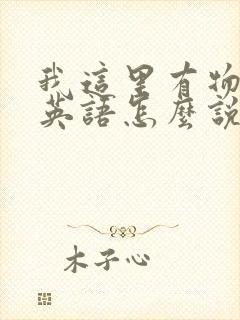 我這里有物
英語怎麼說
木子心